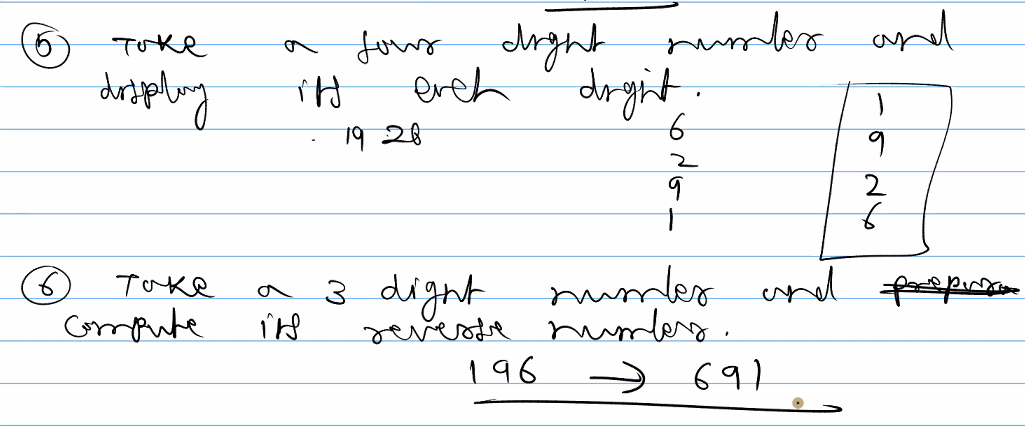 5 Take a four digit number and
display its each digit.
1926
6
2
9
1
1
9
2
6
6 Take a 3 digit number and
compute its reverse number.
196 → 691